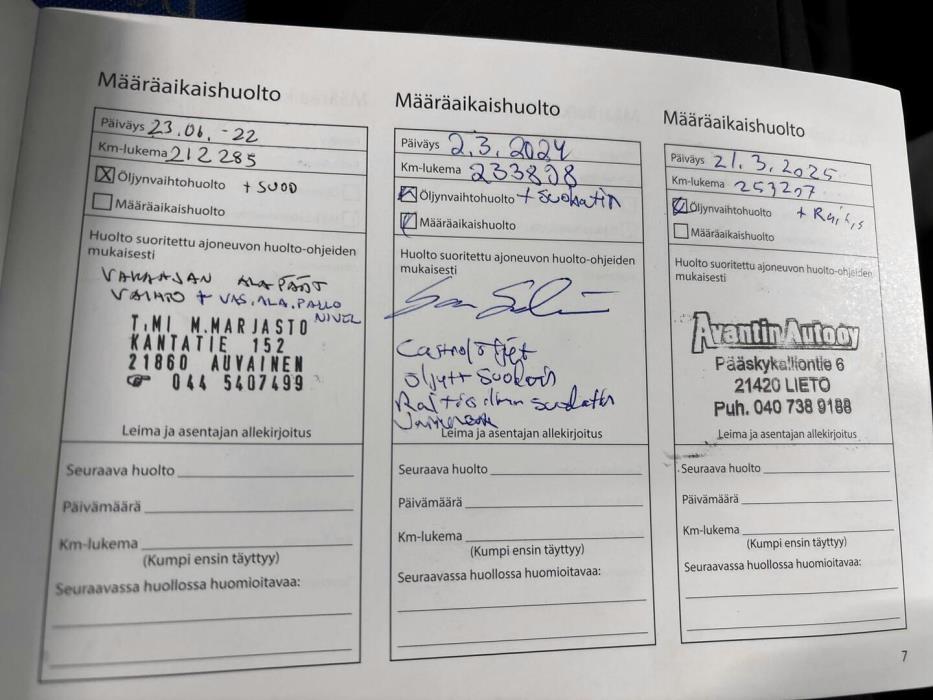 Määräaikaishuolto
Päiväys 23.06.-22
Km-lukema 212285
X Öljynvaihtohuolto + SUOD
Määräaikaishuolto
Huolto suoritettu ajoneuvon huolto-ohjeiden
mukaisesti
ALAPÄÄT
VAIHTO + VAS. ALA. PALLO
NIVEL
T:MI M.MARJASTO
KANTATIE 152
21860 AUVAINEN
☞ 044 5407499
Leima ja asentajan allekirjoitus
Seuraava huolto
Päivämäärä
Km-lukema
(Kumpi ensin täyttyy)
Seuraavassa huollossa huomioitavaa:
Määräaikaishuolto
Päiväys 2.3.2024
Km-lukema 233808
Öljynvaihtohuolto + suodatin
Määräaikaishuolto
Huolto suoritettu ajoneuvon huolto-ohjeiden
mukaisesti
Castrol öljyt
Raitisilman suodatin
Leima ja asentajan allekirjoitus
Seuraava huolto
Päivämäärä
Km-lukema
(Kumpi ensin täyttyy)
Seuraavassa huollossa huomioitavaa:
Määräaikaishuolto
Päiväys 21.3.2025
Km-lukema 253207
Öljynvaihtohuolto + Raitis
Määräaikaishuolto
Huolto suoritettu ajoneuvon huolto-ohjeiden
mukaisesti
Avantin Auto oy
Pääskykalliontie 6
21420 LIETO
Puh. 040 738 9188
Leima ja asentajan allekirjoitus
Seuraava huolto
Päivämäärä
Km-lukema
(Kumpi ensin täyttyy)
Seuraavassa huollossa huomioitavaa:
7